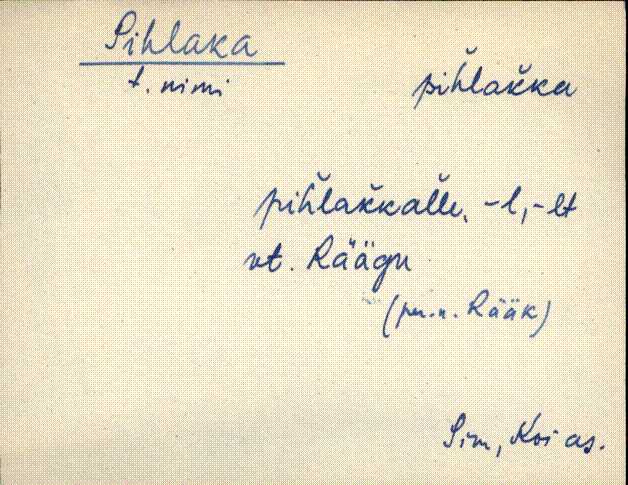 Pihlaka
t. nimi
pihlakka
pihlakkalle, -l, -lt
vt. Räägu
(pn. n. Rääk)
Sim, Koi as.